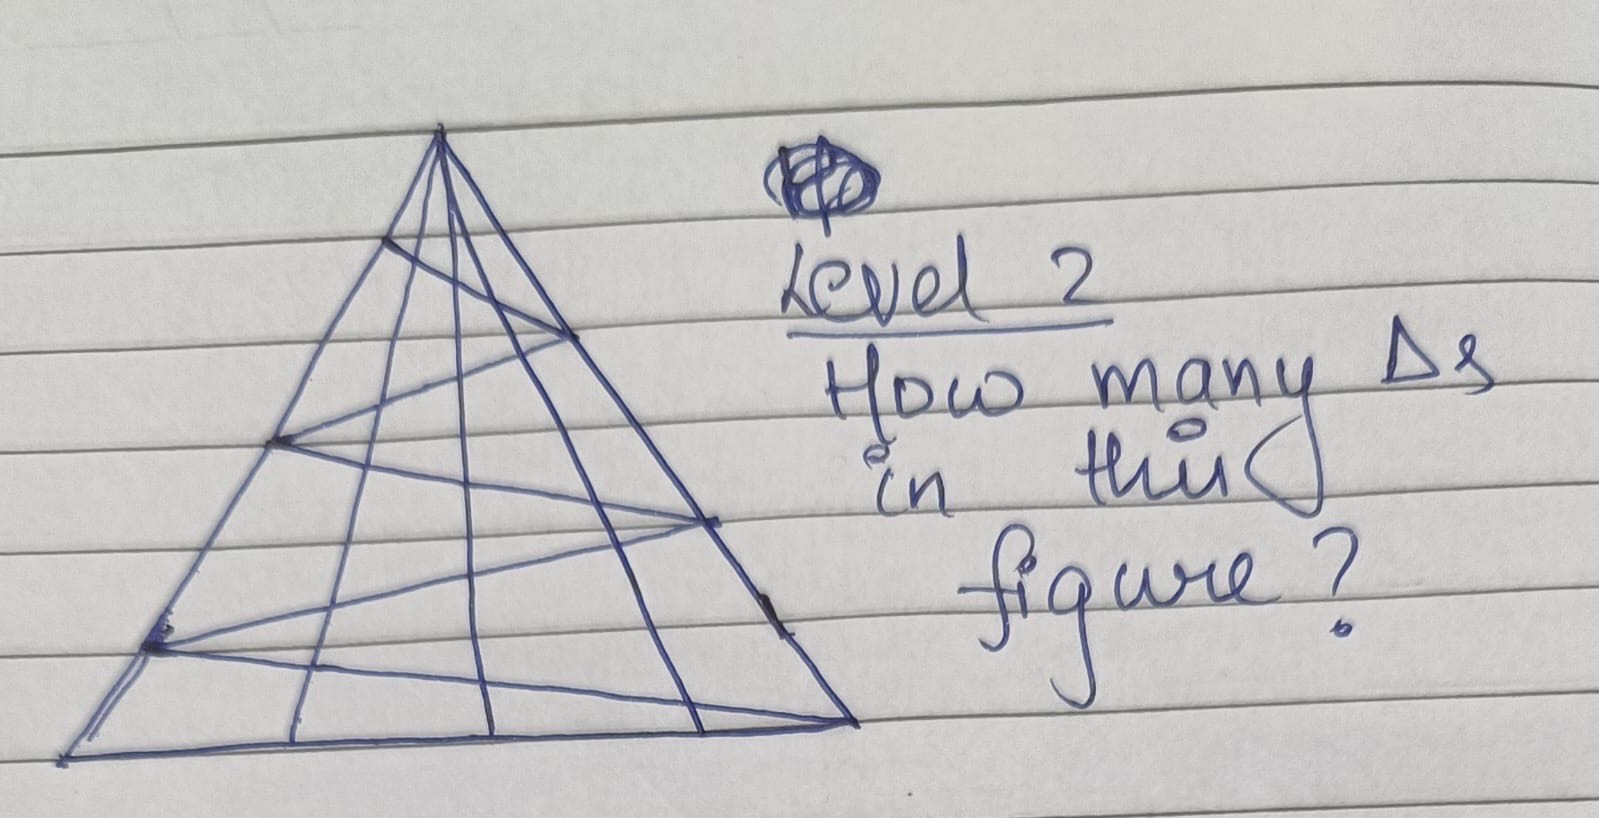 Level 2
How many Δs
in this
figure?